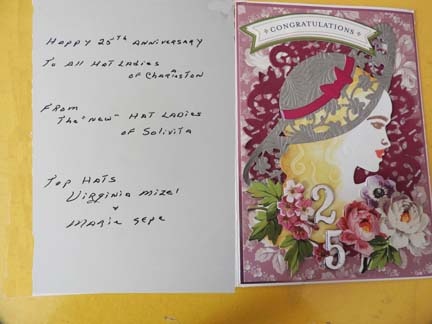 Happy 25th Anniversary
To All Hat Ladies
of Charleston
From
The "New" Hat Ladies
of Solivita
Top Hats
Virginia Mizel
+
Marie Sepe
CONGRATULATIONS
25